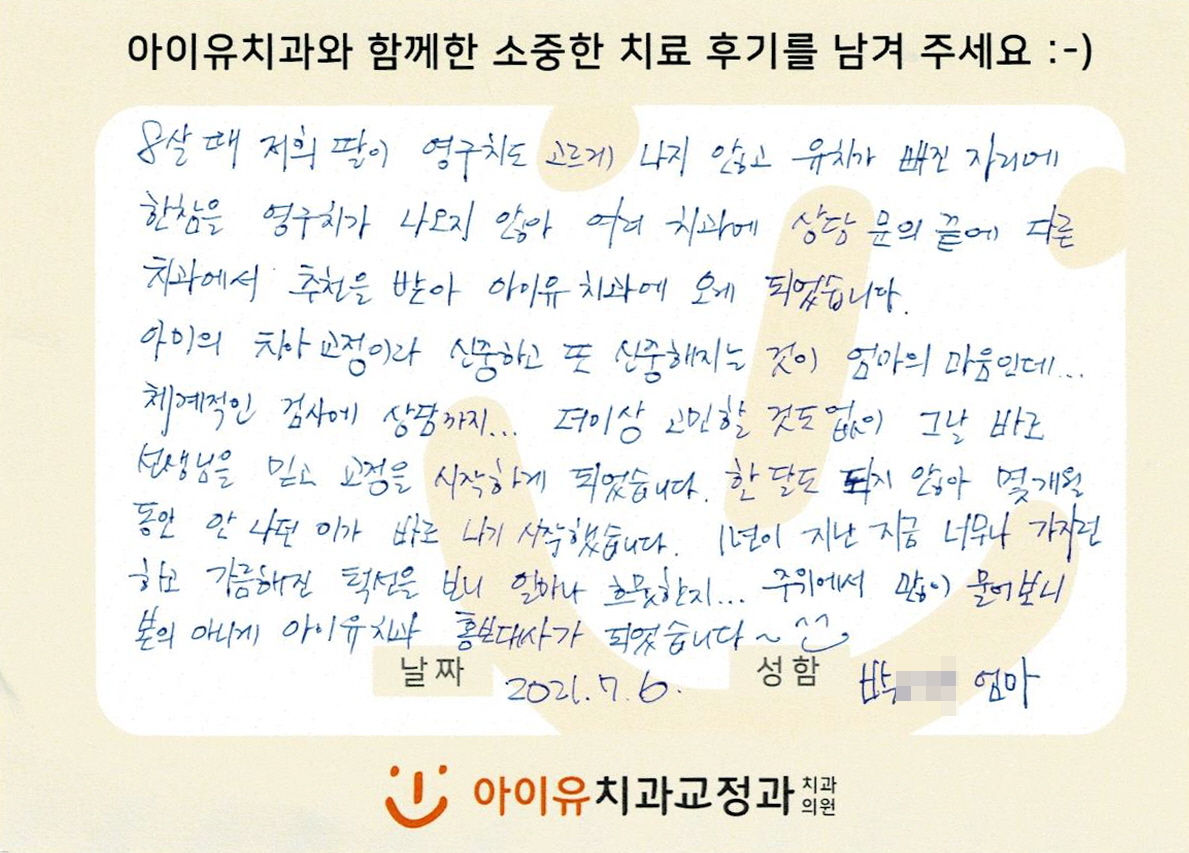 아이유치과와 함께한 소중한 치료 후기를 남겨 주세요 :-)
8살 때 저희 딸이 영구치도 고르게 나지 않고 유치가 빠진 자리에
한참을 영구치가 나오지 않아 여러 치과에 상담 문의 끝에 다른
치과에서 추천을 받아 아이유치과에 오게 되었습니다.
아이의 치아교정이라 신중하고 또 신중해지는 것이 엄마의 마음인데...
체계적인 검사에 상담까지... 더이상 고민할 것도 없이 그날 바로
선생님을 믿고 교정을 시작하게 되었습니다. 한 달도 되지 않아 몇개월
동안 안 나던 이가 바로 나기 시작했습니다. 1년이 지난 지금 너무나 가지런
하고 갸름해진 턱선을 보니 얼마나 흐뭇한지... 주위에서 많이 물어보니
본의 아니게 아이유치과 홍보대사가 되었습니다~ ^^
날짜 2021.7.6. 성함 박 엄마
아이유치과교정과 치과
의원